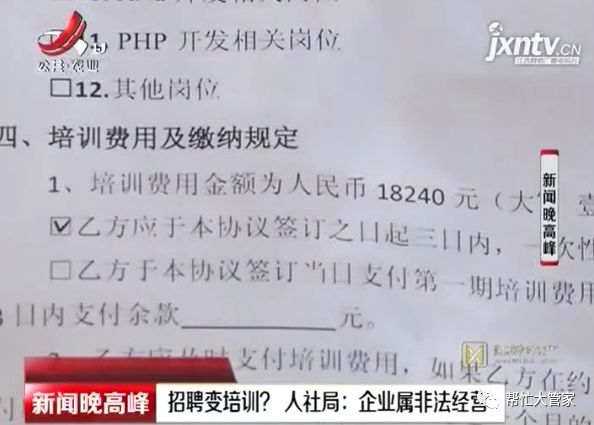 公共·农业
jxntv.CN
1. PHP 开发相关岗位
□12.其他岗位
四、培训费用及缴纳规定
1、培训费用金额为人民币 18240 元（大
☑乙方应于本协议签订之日起三日内，一次性
□乙方于本协议签订当日支付第一期培训费用
日内支付余款 元。
支付培训费用，如果乙方在约
新闻晚高峰
新闻晚高峰
招聘变培训？ 人社局：企业属非法经营
帮忙大管家